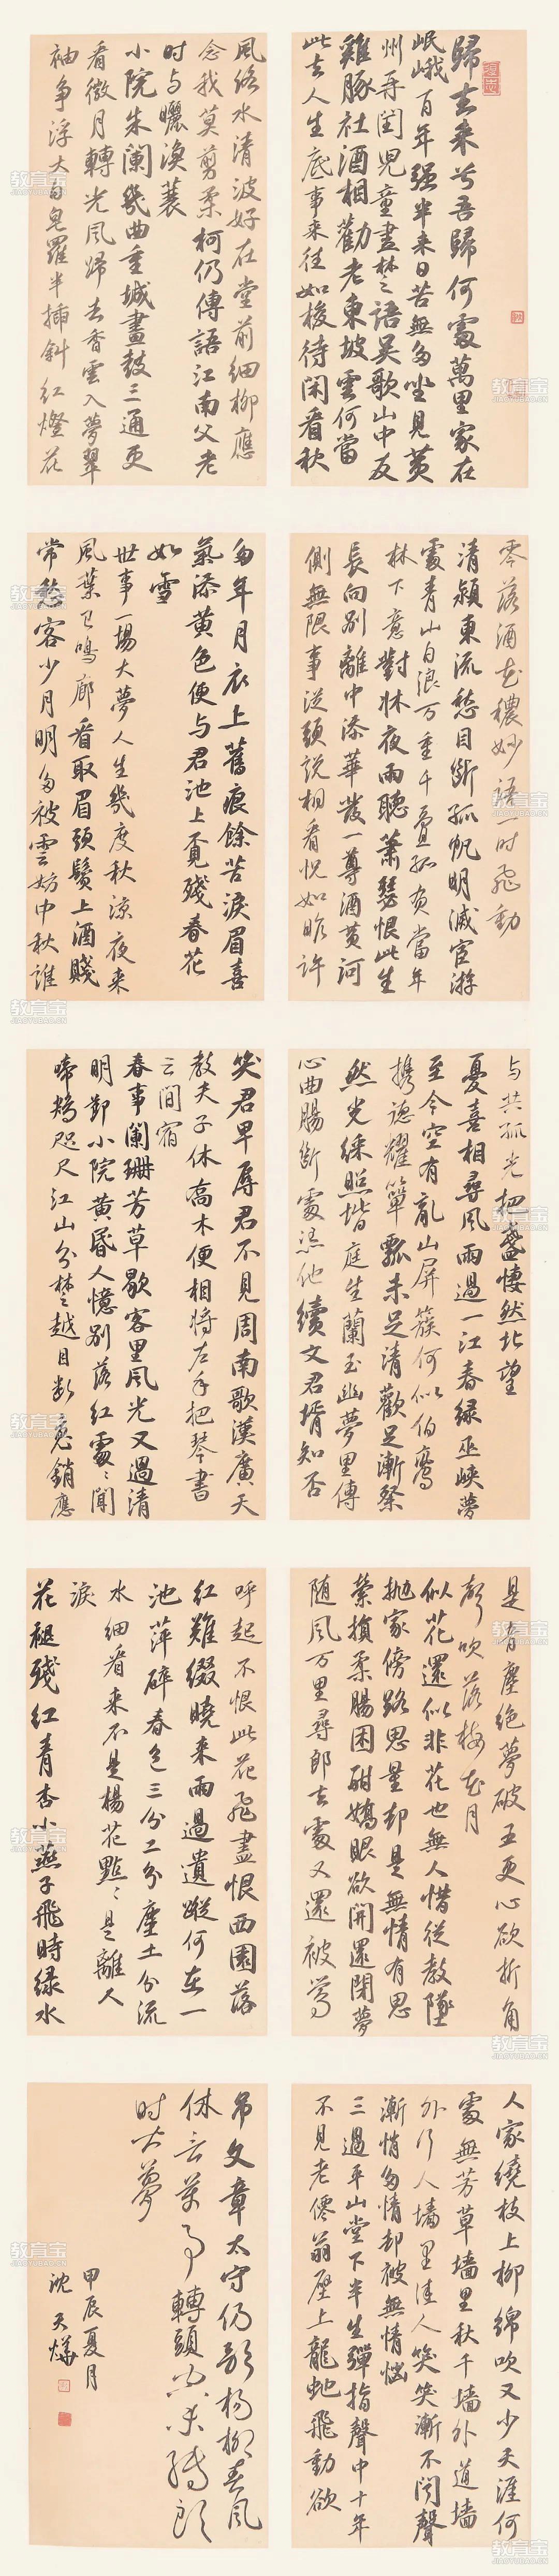 歸去來兮吾歸何處萬里家在
岷峨百年强半來日苦無多坐見黄
州再閏兒童盡楚語吴歌山中友
雞豚社酒相勸老東坡雲何當
此去人生底事來往如梭待閑看秋
風洛水清波好在堂前細柳應
念我莫剪柔柯仍傳語江南父老
时与曬漁蓑
小院朱闌幾曲重城畫鼓三通更
看微月轉光風歸去香雲入夢翠
袖争浮大白皂羅半插斜紅燈花
零落酒花穠妙語一时飛動
清潁東流愁目斷孤帆明滅宦游
處青山白浪万重千疊孤負當年
林下意對牀夜雨聽蕭瑟恨此生
長向别離中添華髮一尊酒黄河
側無限事從頭說相看怳如昨許
多年月衣上舊痕餘苦淚眉喜
氣添黄色便与君池上覓殘春花
如雪
世事一場大夢人生幾度秋涼夜来
風葉已鳴廊看取眉頭鬢上酒賤
常愁客少月明多被雲妨中秋誰
与共孤光把盞悽然北望
憂喜相尋風雨過一江春緑巫峽夢
至今空有亂山屏簇何似伯鸞
携德耀箪瓢未足清歡足漸粲
然光綵照堦庭生蘭玉幽夢里傳
心曲腸斷處憑他續文君壻知否
笑君卑辱君不見周南歌漢廣天
教夫子休喬木便相将左手把琴書
云間宿
春事闌珊芳草歇客里風光又過清
明節小院黄昏人憶别落紅處〻聞
啼鴂咫尺江山分楚越目断魂銷應
是音塵絶夢破五更心欲折角
聲吹落梅花月
似花還似非花也無人惜從教墜
抛家傍路思量却是無情有思
縈損柔腸困酣嬌眼欲開還閉夢
随風万里尋郎去處又還被鶯
呼起不恨此花飛盡恨西園落
紅難綴曉来雨過遺蹤何在一
池萍碎春色三分二分塵土一分流
水細看来不是楊花點〻是離人
淚
花褪殘紅青杏小燕子飛時緑水
人家繞枝上柳綿吹又少天涯何
處無芳草墻里秋千墻外道墻
外行人墻里佳人笑笑漸不聞聲
漸悄多情却被無情惱
三過平山堂下半生彈指聲中十年
不見老僊翁壁上龍蛇飛動欲
吊文章太守仍歌楊柳春風
休言萬事轉頭空未轉頭
时皆夢
甲辰夏月
沈天燁